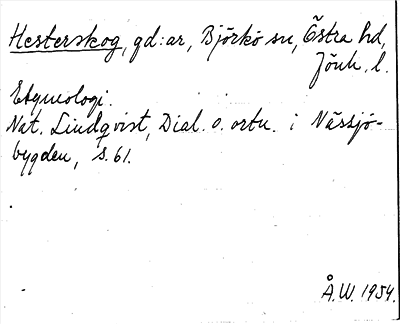 Hesterskog, gd:ar, Björkö sn, Östra hd,
Jönk. l.
Etymologi.
Nat. Lindqvist, Dial. o. ortn. i Nässjö-
bygden, s. 61.
Å.W. 1954.